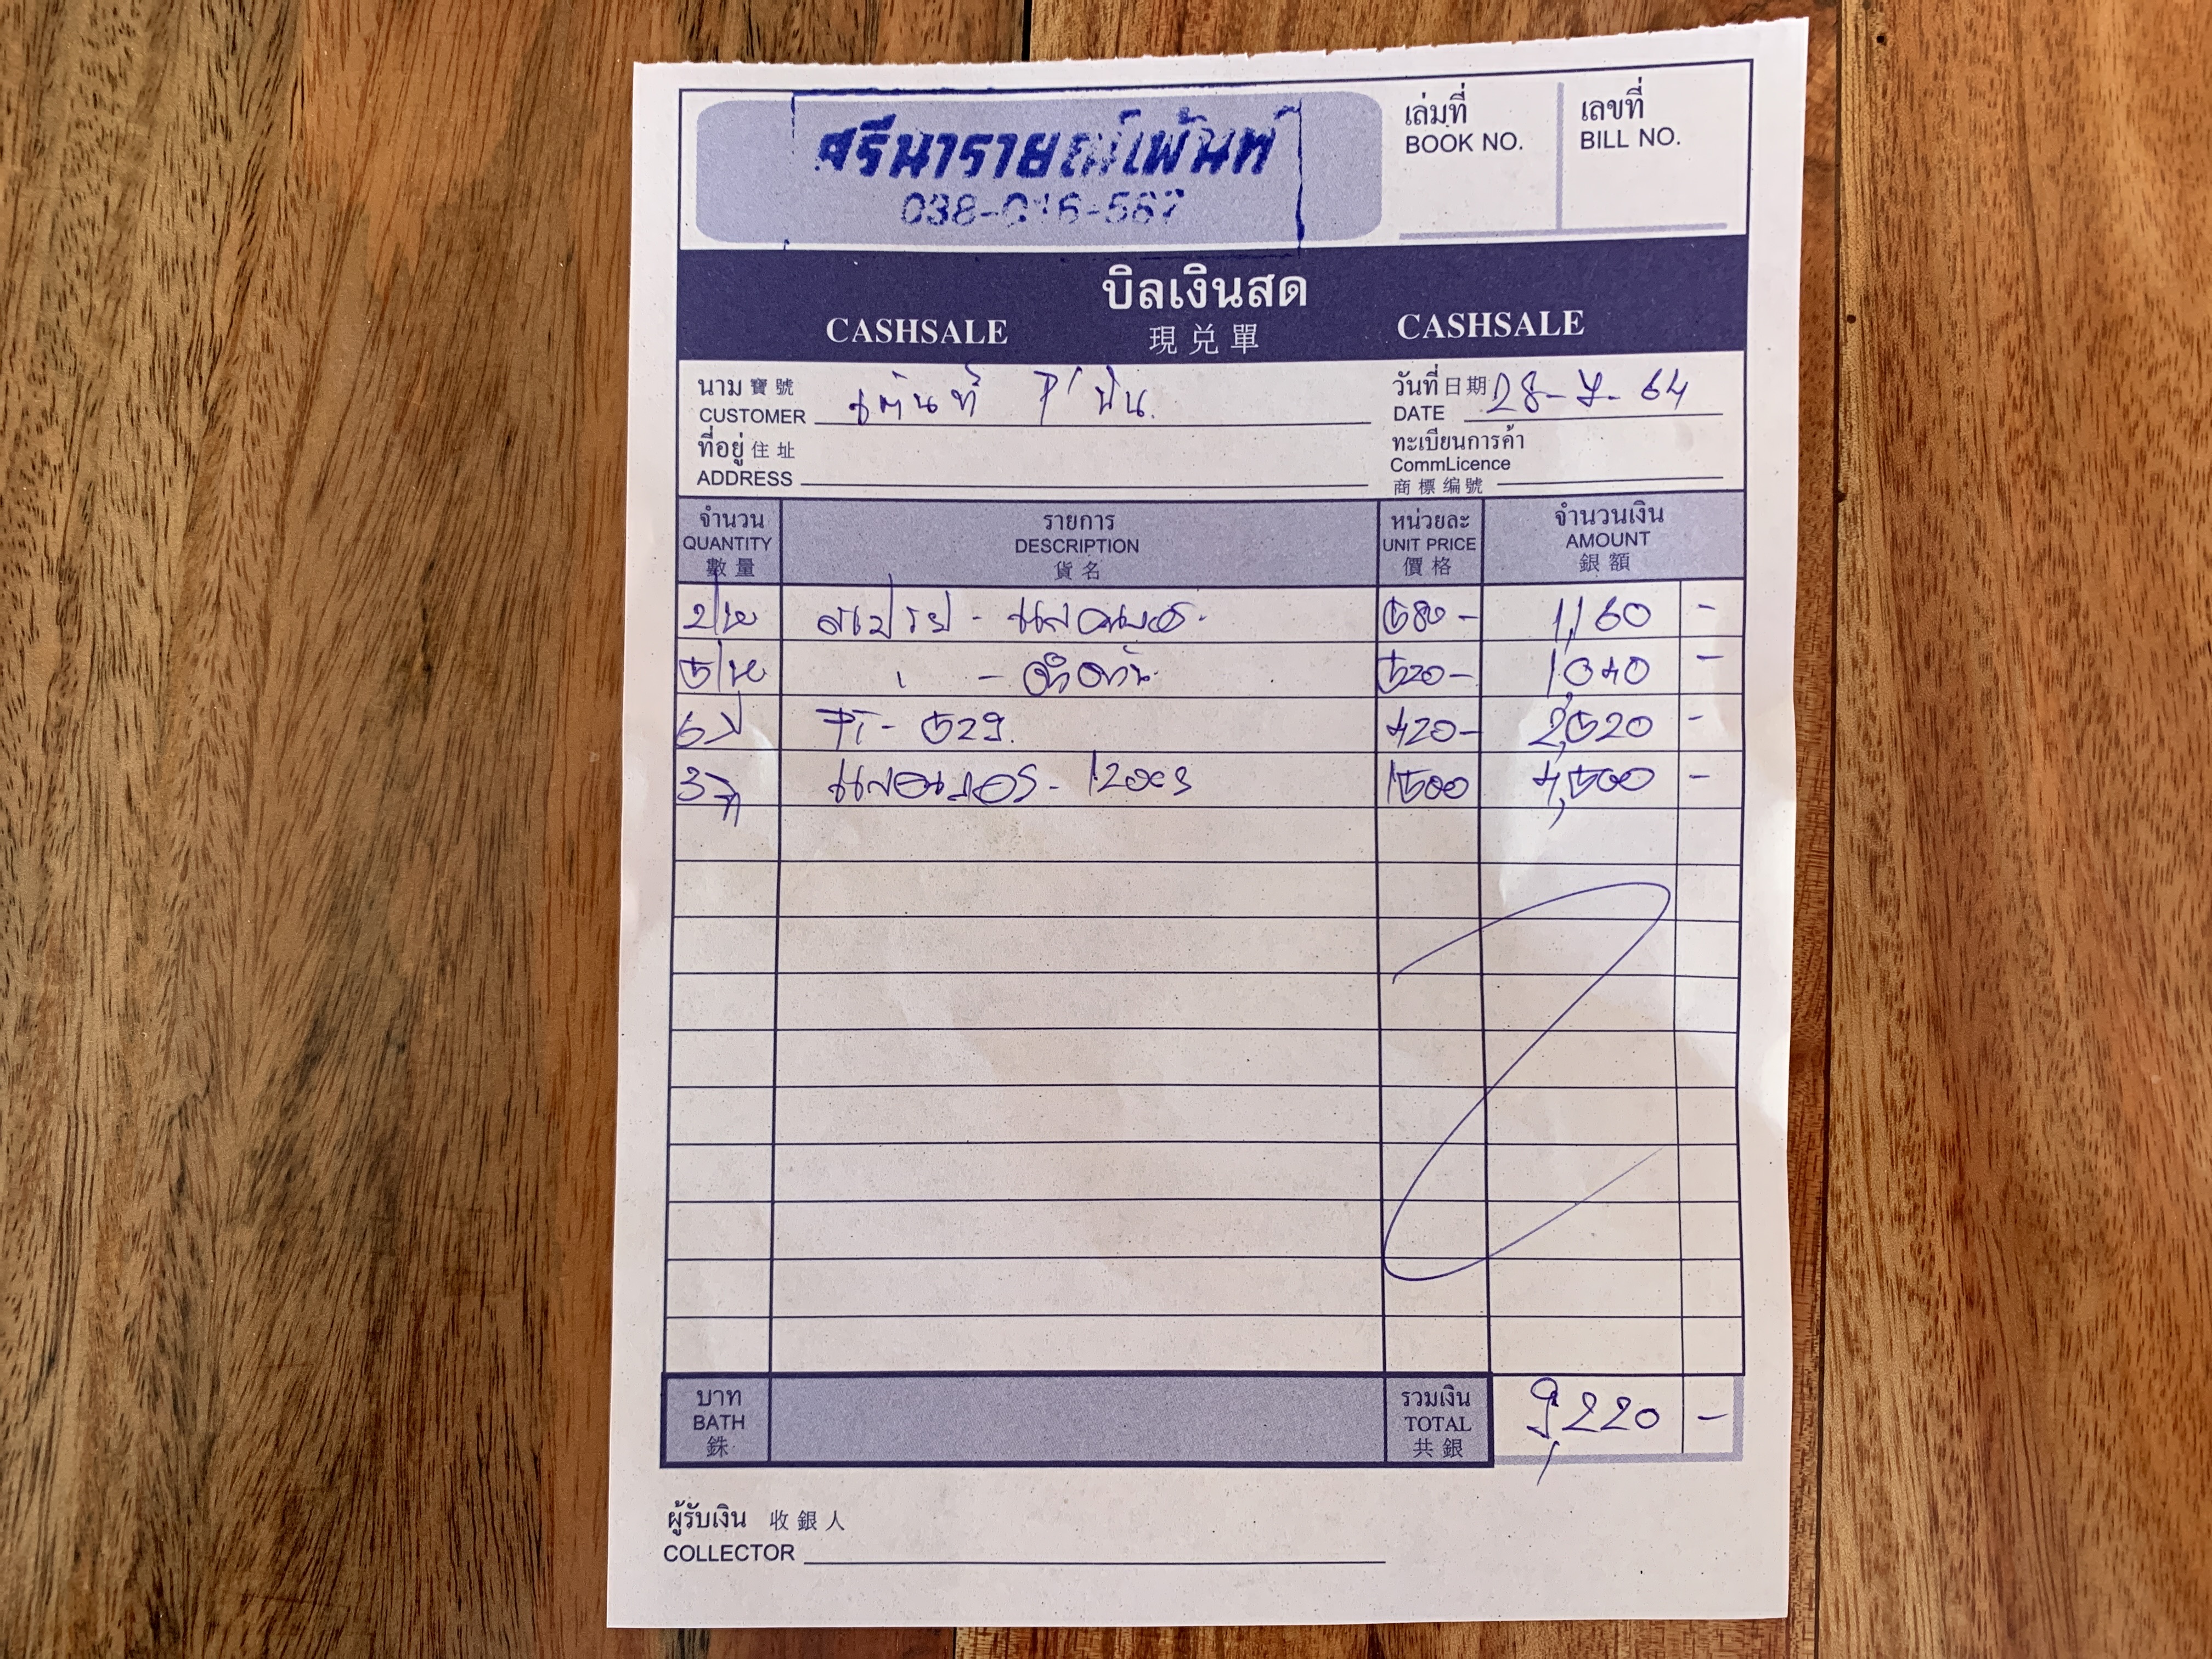 ศรีนารายณ์เพ้นท์
038-016-567
เล่มที่
BOOK NO.
เลขที่
BILL NO.
บิลเงินสด
CASHSALE 現兑單 CASHSALE
นาม 寶號
CUSTOMER
วันที่ 日期
DATE 28-7-64
ที่อยู่ 住址
ADDRESS
ทะเบียนการค้า
CommLicence
商標编號
จำนวน
QUANTITY
數量
รายการ
DESCRIPTION
貨名
หน่วยละ
UNIT PRICE
價格
จำนวนเงิน
AMOUNT
銀額
2 สเปรย์ - 580- 1,160 -
- 520- 1,040 -
6 529. 420- 2,520 -
3 1500 4,500 -
บาท
BATH
銖
รวมเงิน
TOTAL
共銀
9,220 -
ผู้รับเงิน 收銀人
COLLECTOR